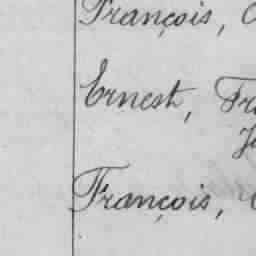 François,
Ernest,
François,